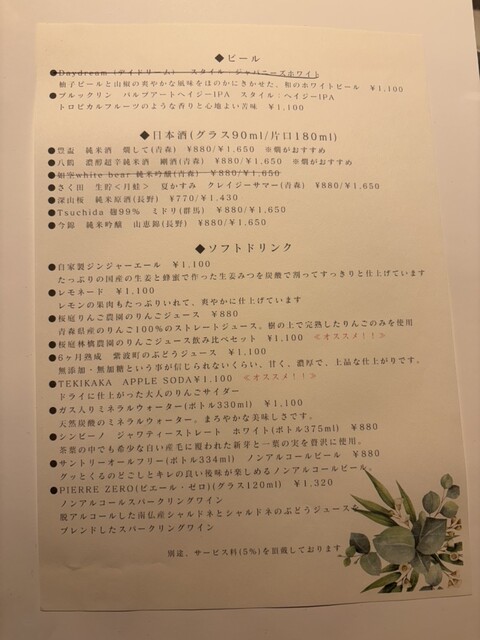 ◆ビール
●Daydream (デイドリーム) スタイル:ジャパニーズホワイト
柚子ビールと山椒の爽やかな風味をほのかにきかせた、和のホワイトビール ¥1,100
●ブルックリン パルプアートヘイジーIPA スタイル:ヘイジーIPA
トロピカルフルーツのような香りと心地よい苦味 ¥1,100
◆日本酒(グラス90ml/片口180ml)
●豊盃 純米酒 燗して(青森) ¥880/¥1,650 ※燗がおすすめ
●八鶴 濃醇超辛純米酒 剛酒(青森) ¥880/¥1,650 ※燗がおすすめ
●如空white bear 純米吟醸(青森) ¥880/¥1,650
●さく田 生貯<月蛙> 夏かすみ クレイジーサマー(青森) ¥880/¥1,650
●深山桜 純米原酒(長野) ¥770/¥1,430
●Tsuchida 麹99% ミドリ(群馬) ¥880/¥1,650
●今錦 純米吟醸 山恵錦(長野) ¥880/¥1,650
◆ソフトドリンク
●自家製ジンジャーエール ¥1,100
たっぷりの国産の生姜と蜂蜜で作った生姜みつを炭酸で割ってすっきりと仕上げています
●レモネード ¥1,100
レモンの果肉もたっぷりいれて、爽やかに仕上げています
●桜庭りんご農園のりんごジュース ¥880
青森県産のりんご100%のストレートジュース。樹の上で完熟したりんごのみを使用
●桜庭林檎農園のりんごジュース飲み比べセット ¥1,100 ≪オススメ!!≫
●6ヶ月熟成 紫波町のぶどうジュース ¥1,100
無添加・無加糖という事が信じられないくらい、甘く、濃厚で、上品な仕上がりです。
●TEKIKAKA APPLE SODA¥1,100 ≪オススメ!!≫
ドライに仕上がった大人のりんごサイダー
●ガス入りミネラルウォーター(ボトル330ml) ¥1,100
天然炭酸のミネラルウォーター。まろやかな美味しさです。
●シンビーノ ジャワティーストレート ホワイト(ボトル375ml) ¥880
茶葉の中でも希少な白い産毛に覆われた新芽と一葉の実を贅沢に使用。
●サントリーオールフリー(ボトル334ml) ノンアルコールビール ¥880
グッとくるのどごしとキレの良い後味が楽しめるノンアルコールビール。
●PIERRE ZERO(ピエール・ゼロ)(グラス120ml) ¥1,320
ノンアルコールスパークリングワイン
脱アルコールした南仏産シャルドネとシャルドネのぶどうジュースを
ブレンドしたスパークリングワイン
別途、サービス料(5%)を頂戴しております